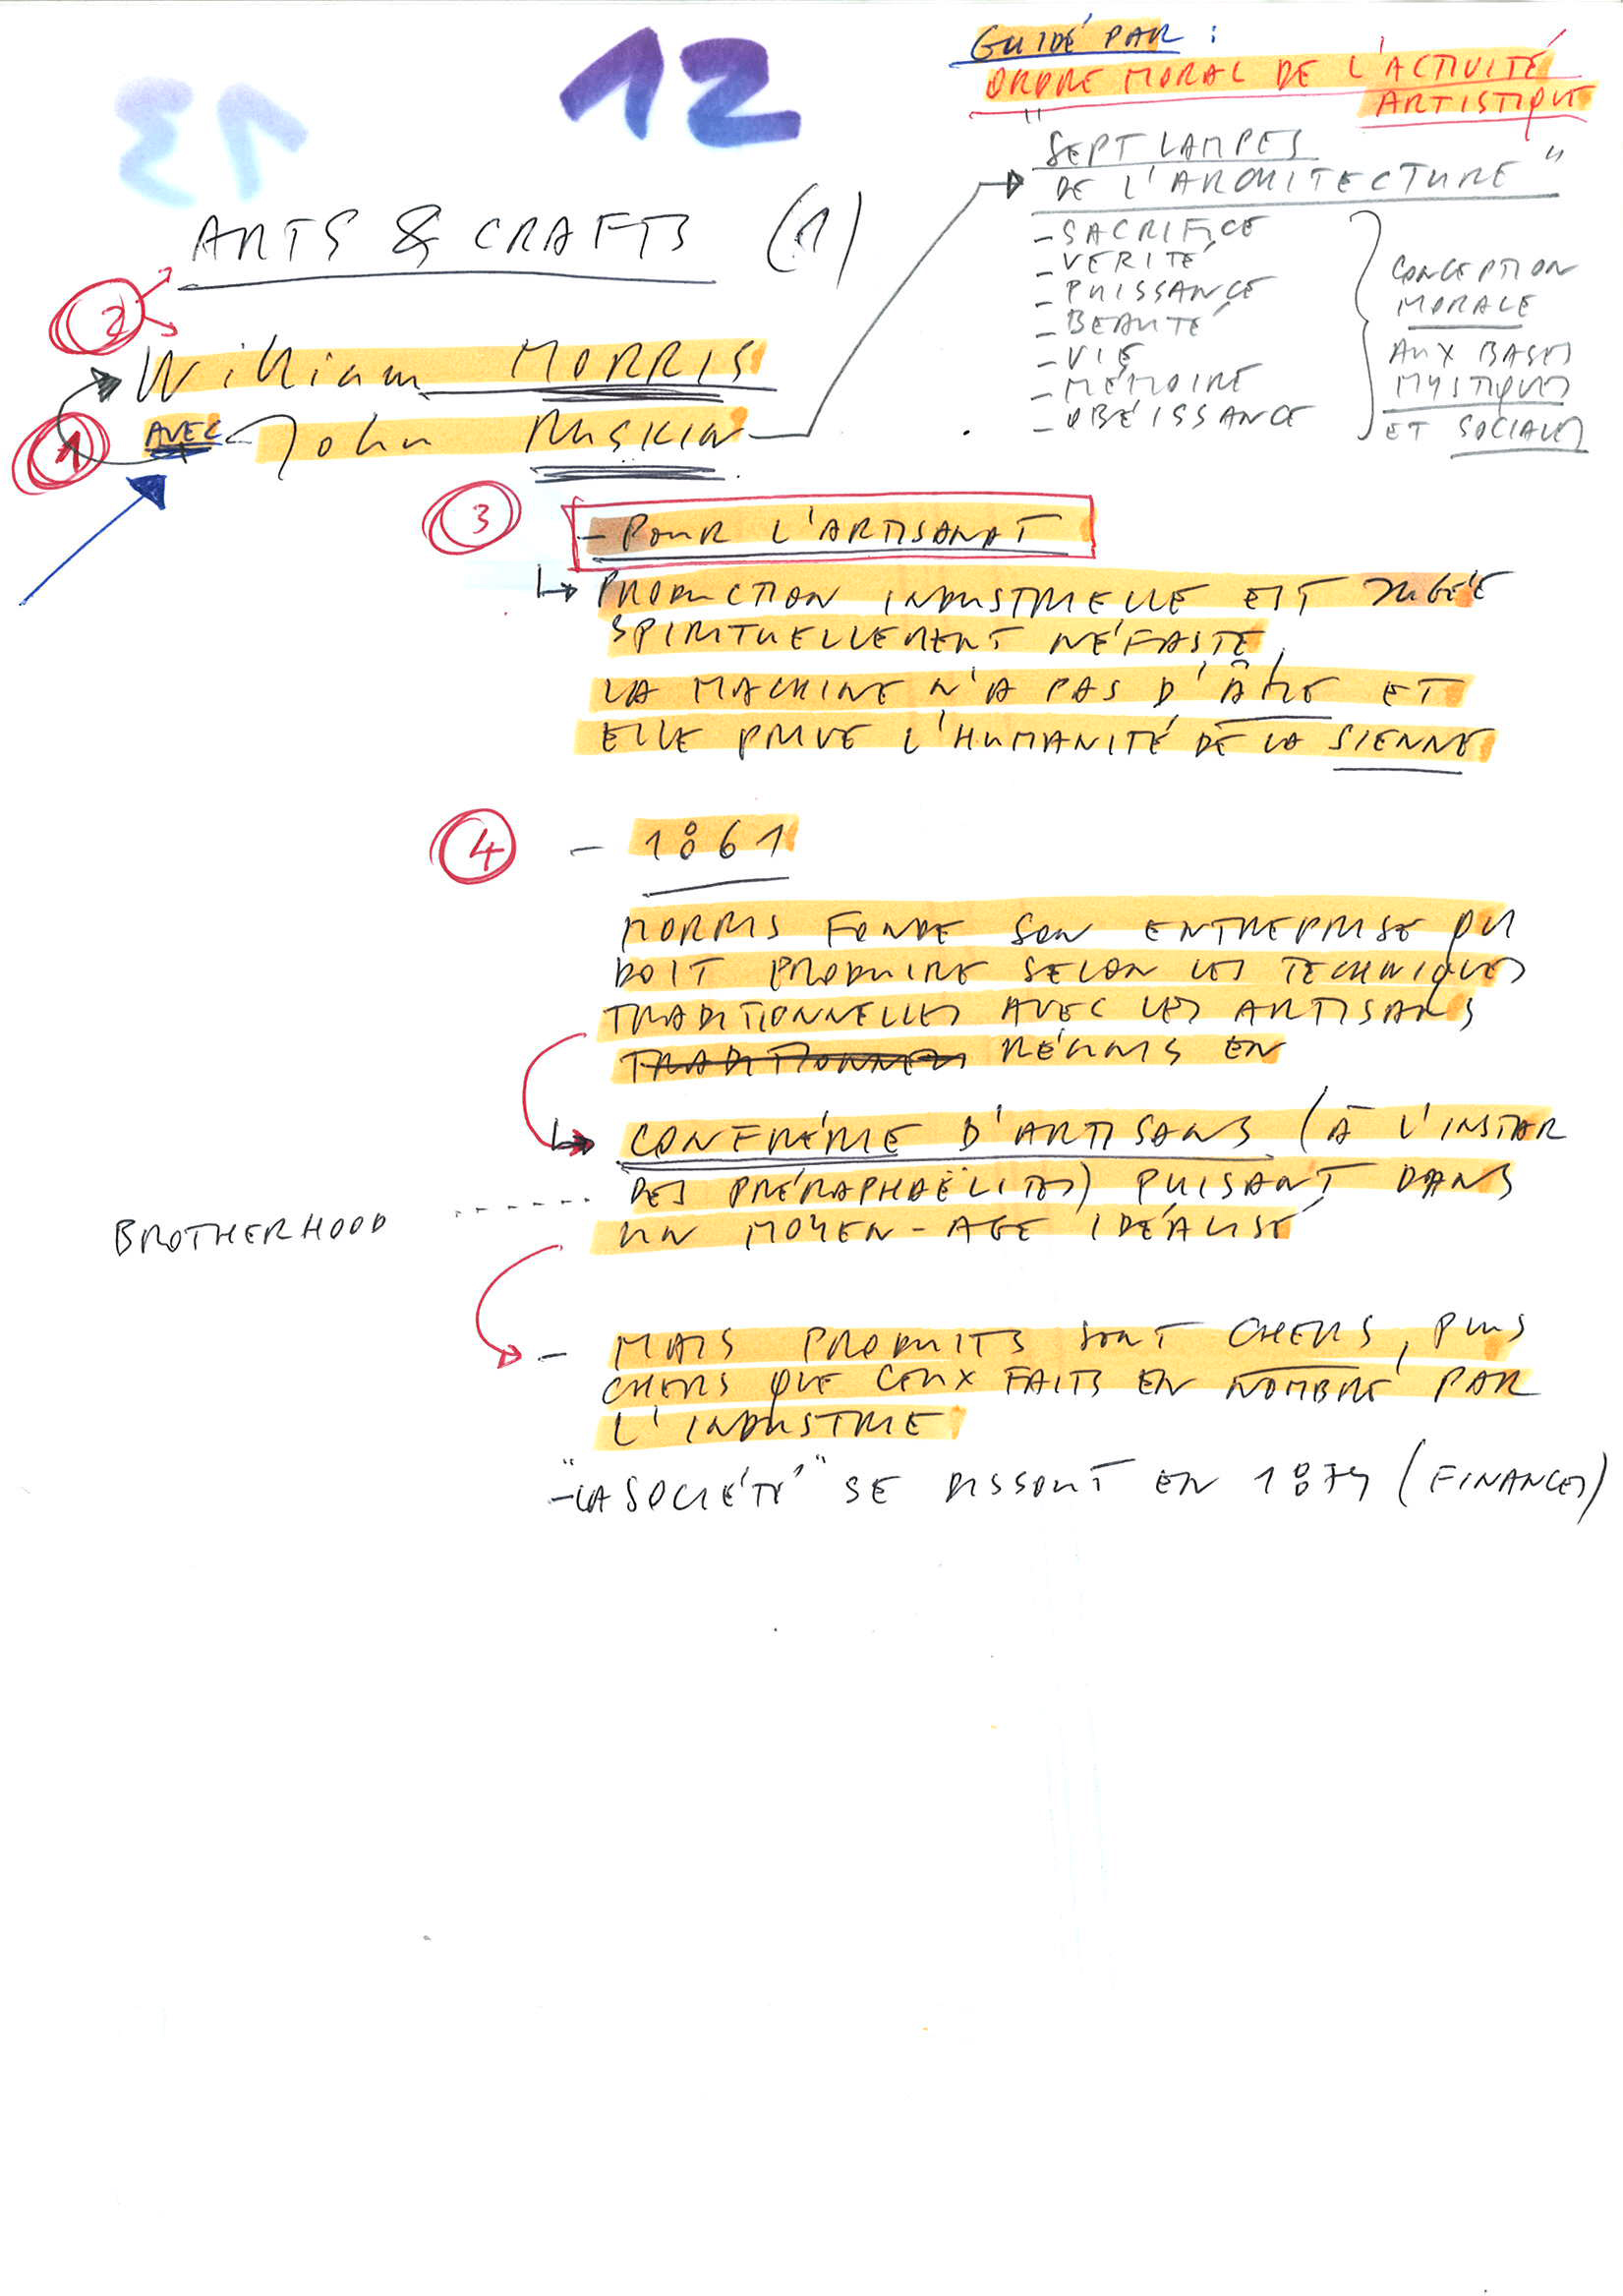 12
GUIDÉ PAR :
ORDRE MORAL DE L'ACTIVITÉ
ARTISTIQUE
"SEPT LAMPES
DE L'ARCHITECTURE"
- SACRIFICE
- VERITÉ
- PUISSANCE
- BEAUTÉ
- VIE
- MÉMOIRE
- OBÉISSANCE
CONCEPTION
MORALE
AUX BASES
MYSTIQUES
ET SOCIALES
ARTS & CRAFTS (1)
2
William MORRIS
1 AVEC John RUSKIN
3 - POUR L'ARTISANAT
PRODUCTION INDUSTRIELLE EST JUGÉE
SPIRITUELLEMENT NÉFASTE,
LA MACHINE N'A PAS D'ÂME ET
ELLE PRIVE L'HUMANITÉ DE LA SIENNE
4 - 1861
MORRIS FONDE SON ENTREPRISE QUI
DOIT PRODUIRE SELON LES TECHNIQUES
TRADITIONNELLES AVEC LES ARTISANS
TRADITIONNELS RÉUNIS EN
CONFRÉRIE D'ARTISANS (À L'INSTAR
DES PRÉRAPHAËLITES) PUISANT DANS
BROTHERHOOD
UN MOYEN-AGE IDÉALISÉ
- MAIS PRODUITS SONT CHERS, PLUS
CHERS QUE CEUX FAITS EN NOMBRE PAR
L'INDUSTRIE
- "LA SOCIÉTÉ" SE DISSOUT EN 1874 (FINANCES)